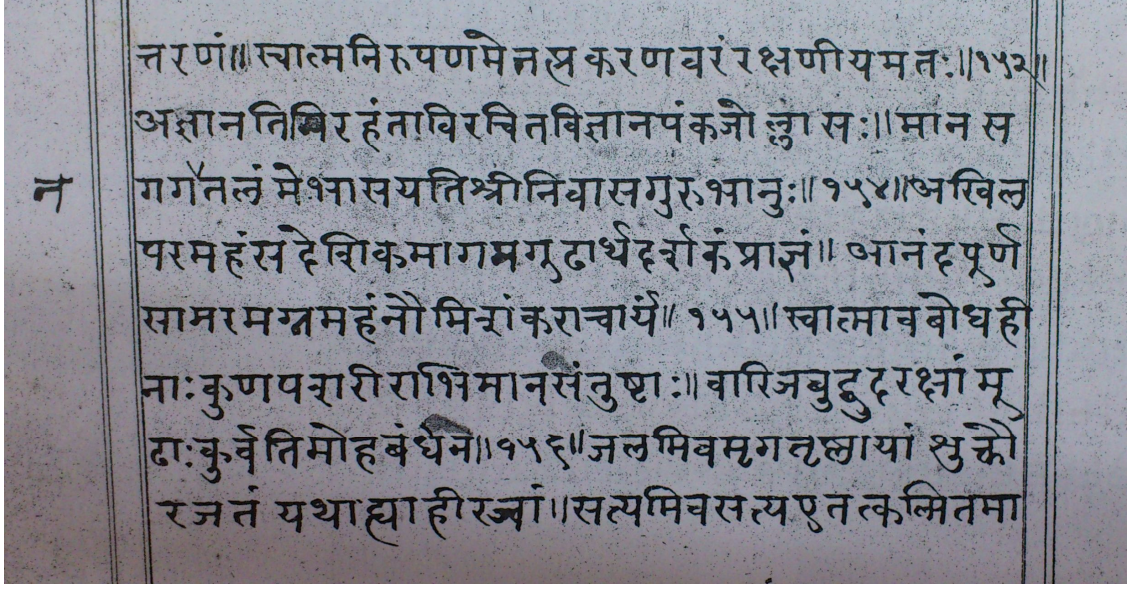 त्तरणं॥ स्वात्मनिरुपणमेतत्प्रकरणवरंरक्षणीयमतः॥१५२॥
अज्ञानतिमिरहंताविरचितविज्ञानपंकजोल्लासः॥मानस
न गगनतलं मेभासयतिश्रीनिवासगुरुभानुः॥१५४॥अखिल
परमहंसदेशिकमागमगुढार्थदर्शकंप्राज्ञं॥ आनंदपूर्ण
सामरमग्नमहंनौमिशंकराचार्यं॥१५५॥स्वात्मावबोधही
नाःकुणपशरीराभिमानसंतुष्टाः॥वारिजबुद्बुदरक्षां मू
ढाःकुर्वंतिमोहबंधेन॥१५६॥जलमिवमृगतृष्णायां शुक्तौ
रजतं यथाह्याहीरज्वां॥सत्यमिवसत्यएतत्कल्पितमा